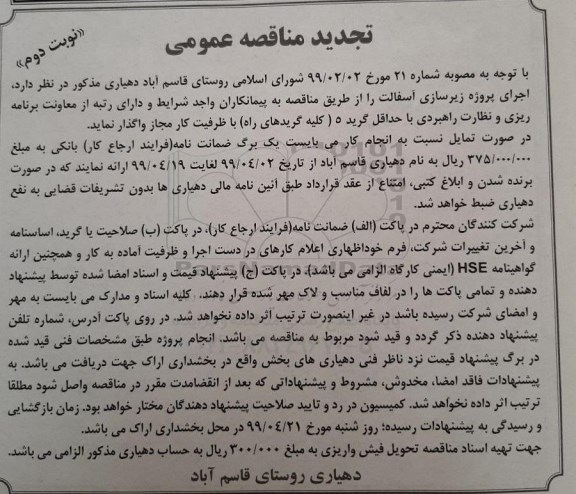 تجدید مناقصه عمومی
«نوبت دوم»
با توجه به مصوبه شماره ۲۱ مورخ ۹۹/۰۲/۰۲ شورای اسلامی روستای قاسم آباد دهیاری مذکور در نظر دارد،
اجرای پروژه زیرسازی آسفالت را از طریق مناقصه به پیمانکاران واجد شرایط و دارای رتبه از معاونت برنامه
ریزی و نظارت راهبردی با حداقل گرید ۵ ( کلیه گریدهای راه) با ظرفیت کار مجاز واگذار نماید.
در صورت تمایل نسبت به انجام کار می بایست یک برگ ضمانت نامه(فرایند ارجاع کار) بانکی به مبلغ
۳۷۵/۰۰۰/۰۰۰ ریال به نام دهیاری قاسم آباد از تاریخ ۹۹/۰۴/۰۲ لغایت ۹۹/۰۴/۱۹ ارائه نمایند که در صورت
برنده شدن و ابلاغ کتبی، امتناع از عقد قرارداد طبق آئین نامه مالی دهیاری ها بدون تشریفات قضایی به نفع
دهیاری ضبط خواهد شد.
شرکت کنندگان محترم در پاکت (الف) ضمانت نامه(فرایند ارجاع کار)، در پاکت (ب) صلاحیت یا گرید، اساسنامه
و آخرین تغییرات شرکت، فرم خوداظهاری اعلام کارهای در دست اجرا و ظرفیت آماده به کار و همچنین ارائه
گواهینامه HSE (ایمنی کارگاه الزامی می باشد)، در پاکت (ج) پیشنهاد قیمت و اسناد امضا شده توسط پیشنهاد
دهنده و تمامی پاکت ها را در لفاف مناسب و لاک مهر شده قرار دهند. کلیه اسناد و مدارک می بایست به مهر
و امضای شرکت رسیده باشد در غیر اینصورت ترتیب اثر داده نخواهد شد. در روی پاکت آدرس، شماره تلفن
پیشنهاد دهنده ذکر گردد و قید شود مربوط به مناقصه می باشد. انجام پروژه طبق مشخصات فنی قید شده
در برگ پیشنهاد قیمت نزد ناظر فنی دهیاری های بخش واقع در بخشداری اراک جهت دریافت می باشد. به
پیشنهادات فاقد امضا، مخدوش، مشروط و پیشنهاداتی که بعد از انقضامدت مقرر در مناقصه واصل شود مطلقا
ترتیب اثر داده نخواهد شد. کمیسیون در رد و تایید صلاحیت پیشنهاد دهندگان مختار خواهد بود. زمان بازگشایی
و رسیدگی به پیشنهادات رسیده؛ روز شنبه مورخ ۹۹/۰۴/۲۱ در محل بخشداری اراک می باشد.
جهت تهیه اسناد مناقصه تحویل فیش واریزی به مبلغ ۳۰۰/۰۰۰ ریال به حساب دهیاری مذکور الزامی می باشد.
دهیاری روستای قاسم آباد